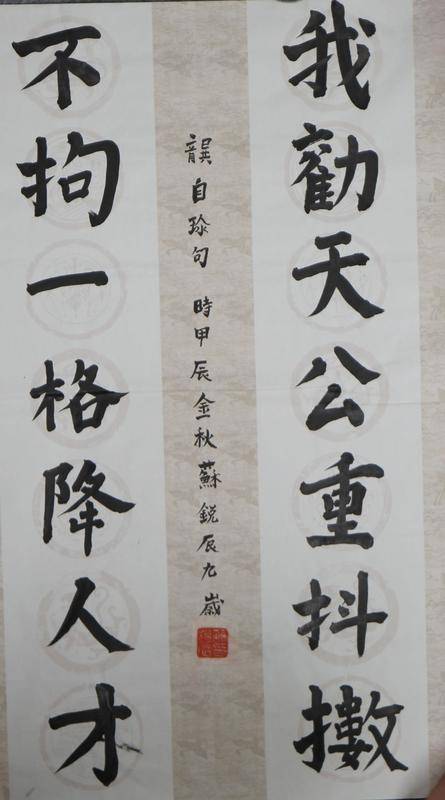 我勸天公重抖擻
不拘一格降人才
龔自珍句 時甲辰金秋蘇鋭辰九歲